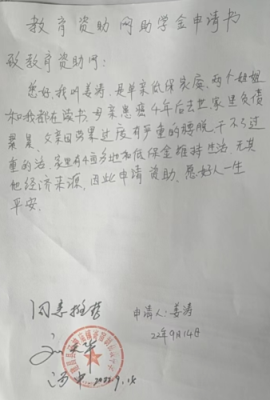 教育资助网助学金申请书
致教育资助网:
您好我叫姜涛,是单亲低保家庭,两个姐姐
和我都在读书,母亲患癌4年后去世家里负债
累累,父亲因劳累过度有严重的腰脱,干不了过
重的活,家里有4亩多地和低保金维持生活,无其
他经济来源,因此申请资助,愿好人一生
平安。
同意推荐
申请人:姜涛
22年9月14日
2022.9.14